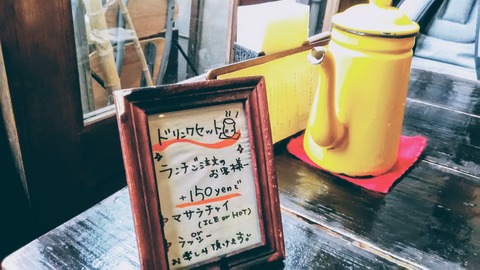 ドリンクセット
ランチご注文の
お客様
+150yenで
マサラチャイ
(ICE or HOT)
or
ラッシー
お楽しみ頂けます